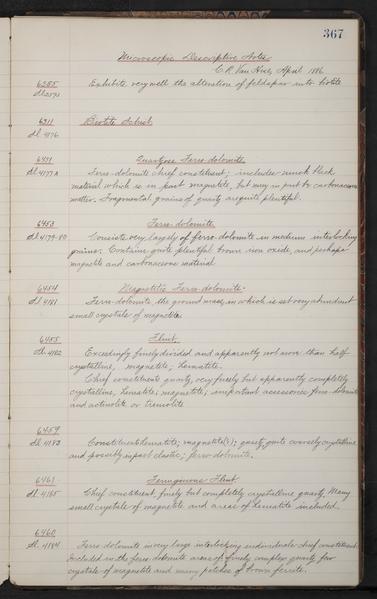 367
Microscopic Descriptive Notes
C.R. Van Hise, April 1886
6285 Exhibits very well the alteration of feldspar into biotite
sl. 3893
6311 Biotite Schist
sl 4176
6451 Quartzose Ferro-dolomite
sl 4177A Ferro-dolomite chief constituent; includes much black
material which is in part magnetite, but may in part be carbonaceous
matter. Fragmental grains of quartz are quite plentiful.
6453 Ferro-dolomite
sl 4179-80 Consists very largely of ferro-dolomite in medium interlocking
grains. Contains quite plentiful brown iron oxide, and perhaps
magnetite and carbonaceous material
6454 Magnetitic Ferro-dolomite
sl 4181 Ferro-dolomite the ground mass, in which is set very abundant
small crystals of magnetite.
6455 Flint
sl. 4182 Exceedingly finely divided and apparently not more than half
crystalline, magnetite; hematite.
Chief constituents quartz, very finely but apparently completely
crystalline, hematite; magnetite; important accessories ferro-dolomite
and actinolite or tremolite
6459
sl 4183 Constituents hematite; magnetite(?); quartz, quite coarsely crystalline
and possibly in part clastic; ferro-dolomite.
6461 Ferruginous Flint
sl. 4185 Chief constituent, finely but completely crystalline quartz. Many
small crystals of magnetite and areas of hematite included.
6460
sl. 4184 Ferro dolomite in very large interlocking individuals chief constituent.
Included in the ferro-dolomite areas of finely complex quartz, few
crystals of magnetite and many patches of brown ferrite.